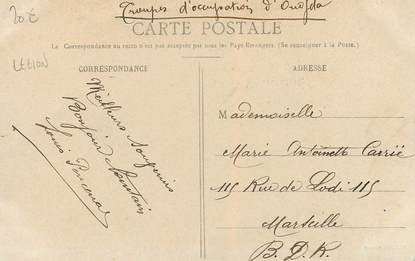 20 €
LEGION
Troupes d'occupation d'Oudjda
CARTE POSTALE
La Correspondance au recto n'est pas acceptée par tous les Pays Etrangers. (Se renseigner à la Poste.)
CORRESPONDANCE
Meilleurs Souvenirs
Bonjour
Louis
ADRESSE
Mademoiselle
Marie Antoinette Carrié
115 Rue de Lodi 115
Marseille
B. D. R.